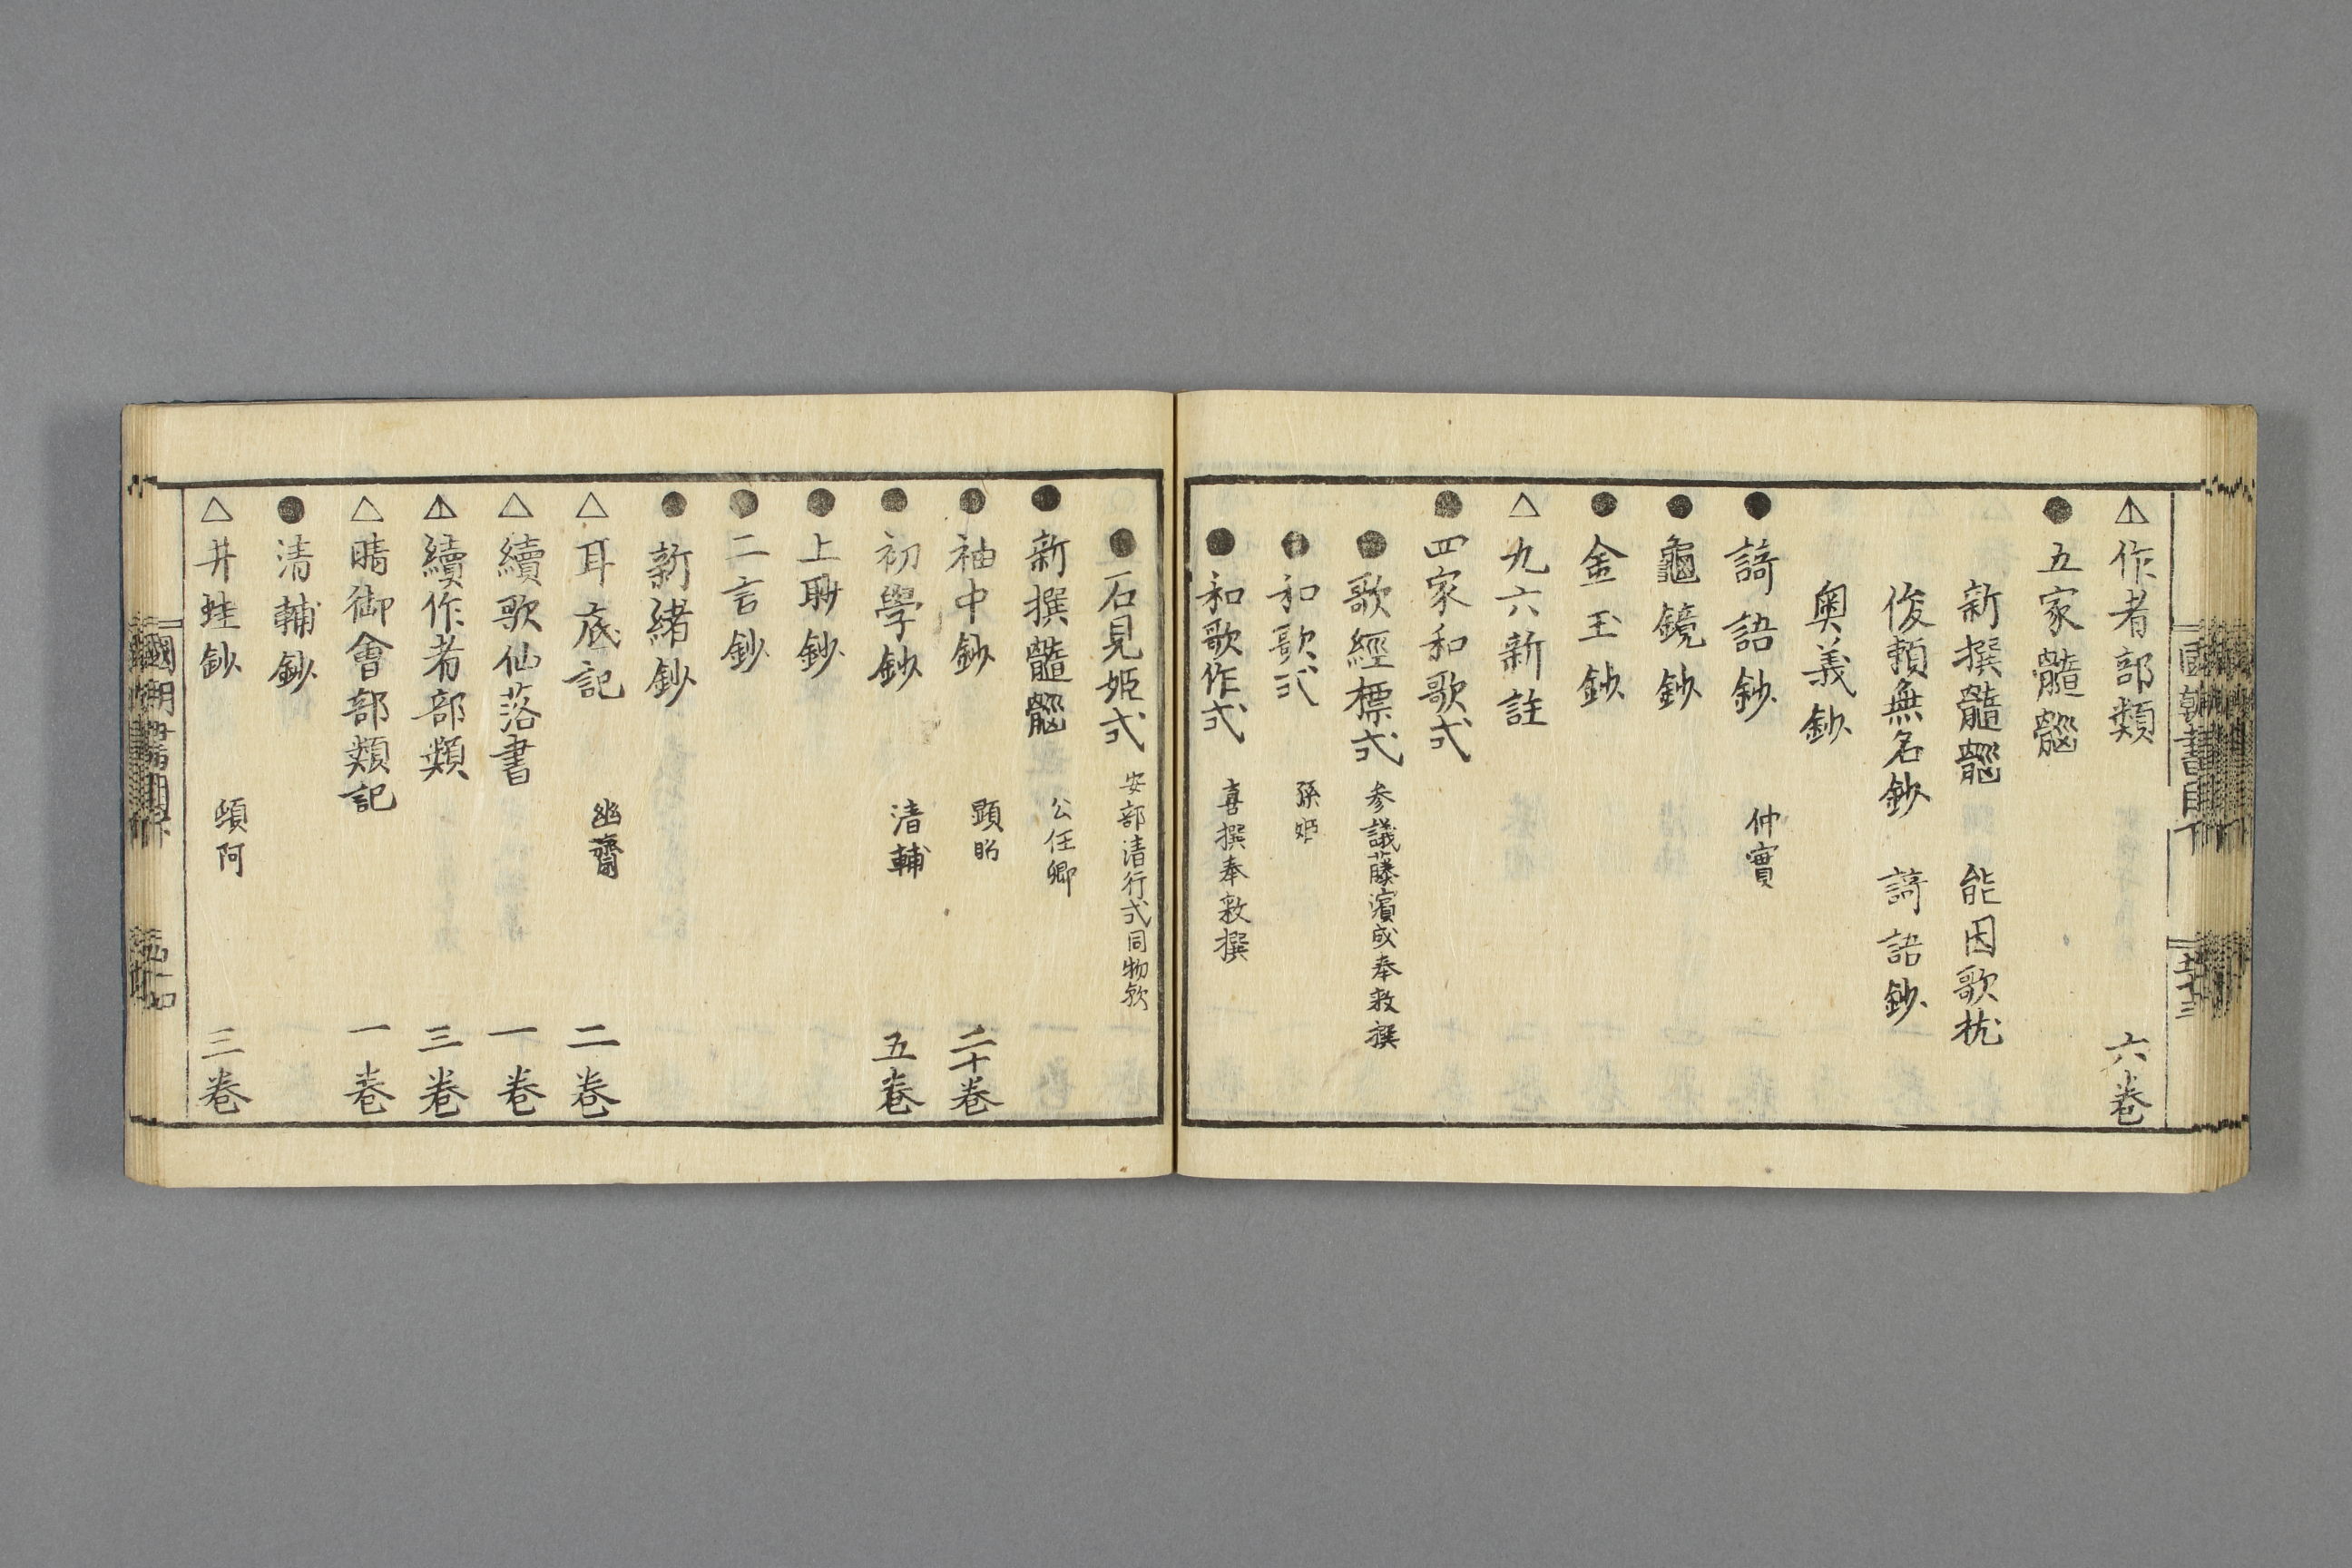 作者部類 六卷
●五家髓䐉
新撰髓䐉 能因歌枕
俊頼無名鈔 謌語鈔
奥義鈔
●謌語鈔 仲實
●龜鏡鈔
●金玉鈔
△九六新註
●四家和歌式
●歌經標式 参議藤濱成奉敕撰
●和歌式 孫姫
●和歌作式 喜撰奉敕撰
●石見姫式 安部清行式同物欤
●新撰髓䐉 公任卿
●袖中鈔 顕昭 二十卷
●初學鈔 清輔 五卷
●上聊鈔
●二言鈔
●新緒鈔
△耳底記 幽齋 二卷
△續歌仙落書 一卷
續作者部類 三卷
△晴御會部類記 一卷
●清輔鈔
△井蛙鈔 頓阿 三卷
國朝書目下